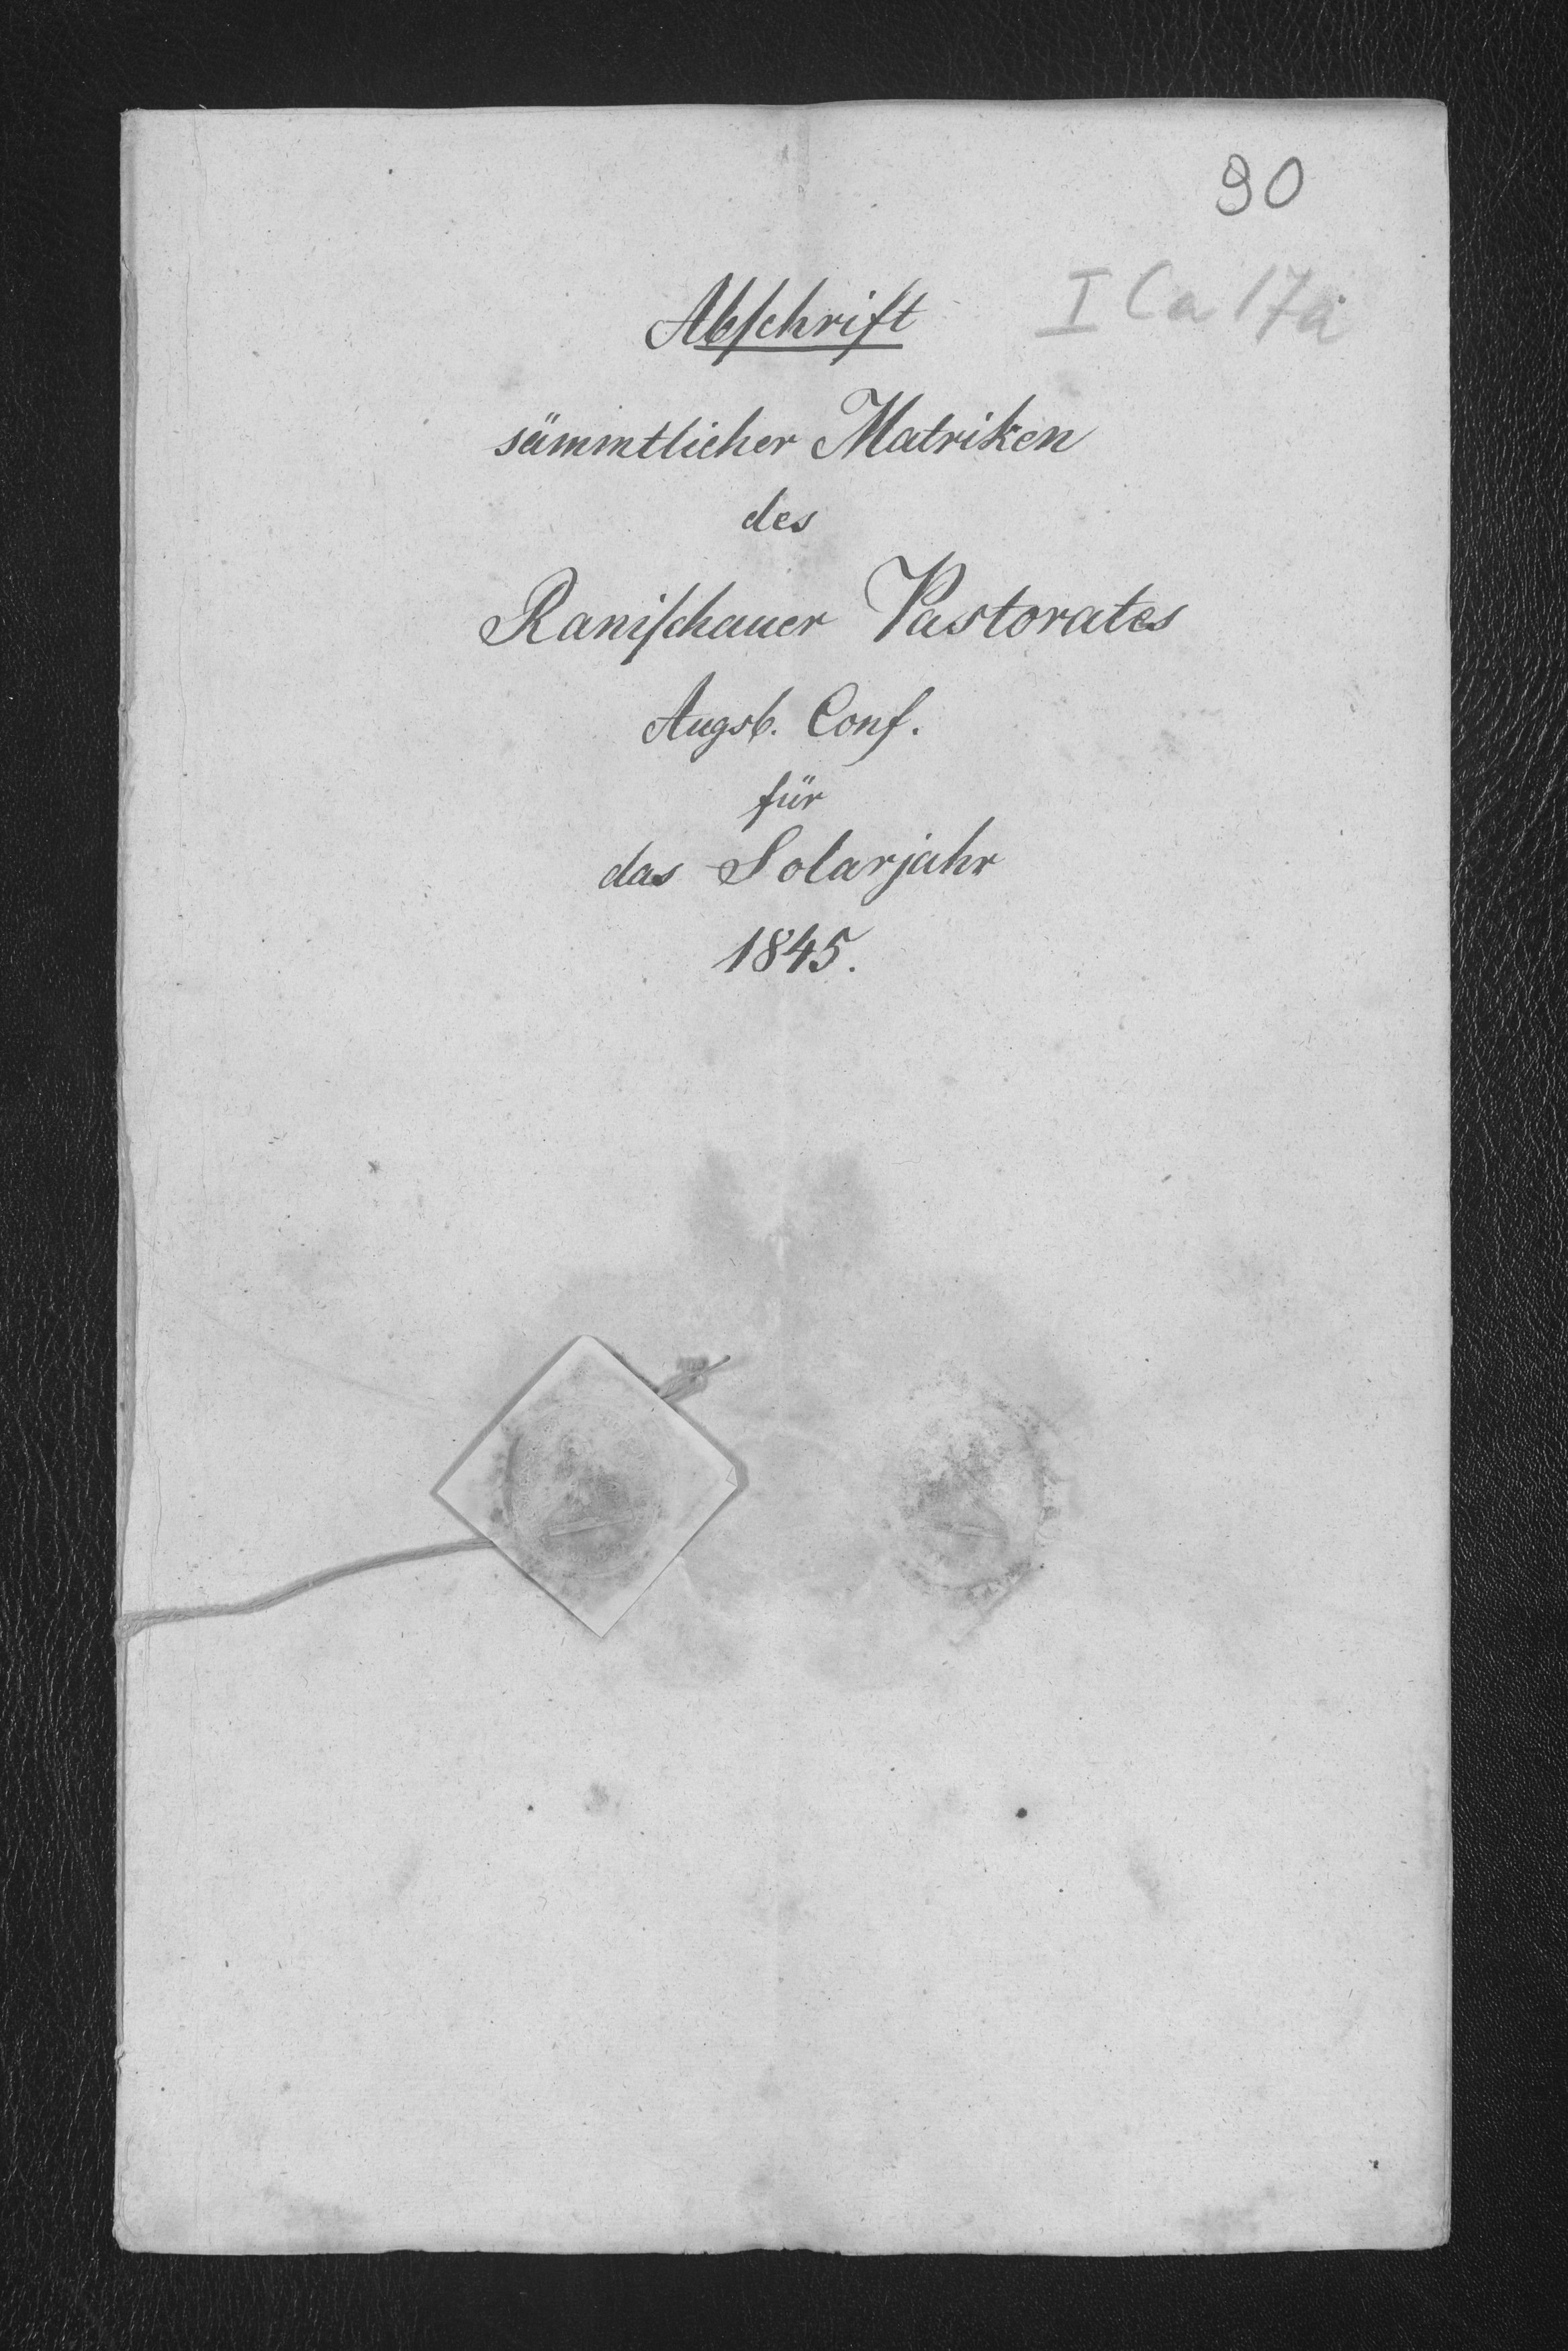 90
I Ca 17a
Abſchrift
sämmtlicher Matriken
des
Raniſchauer Pastorates
Augsb. Conf.
für
das Solarjahr
1845.